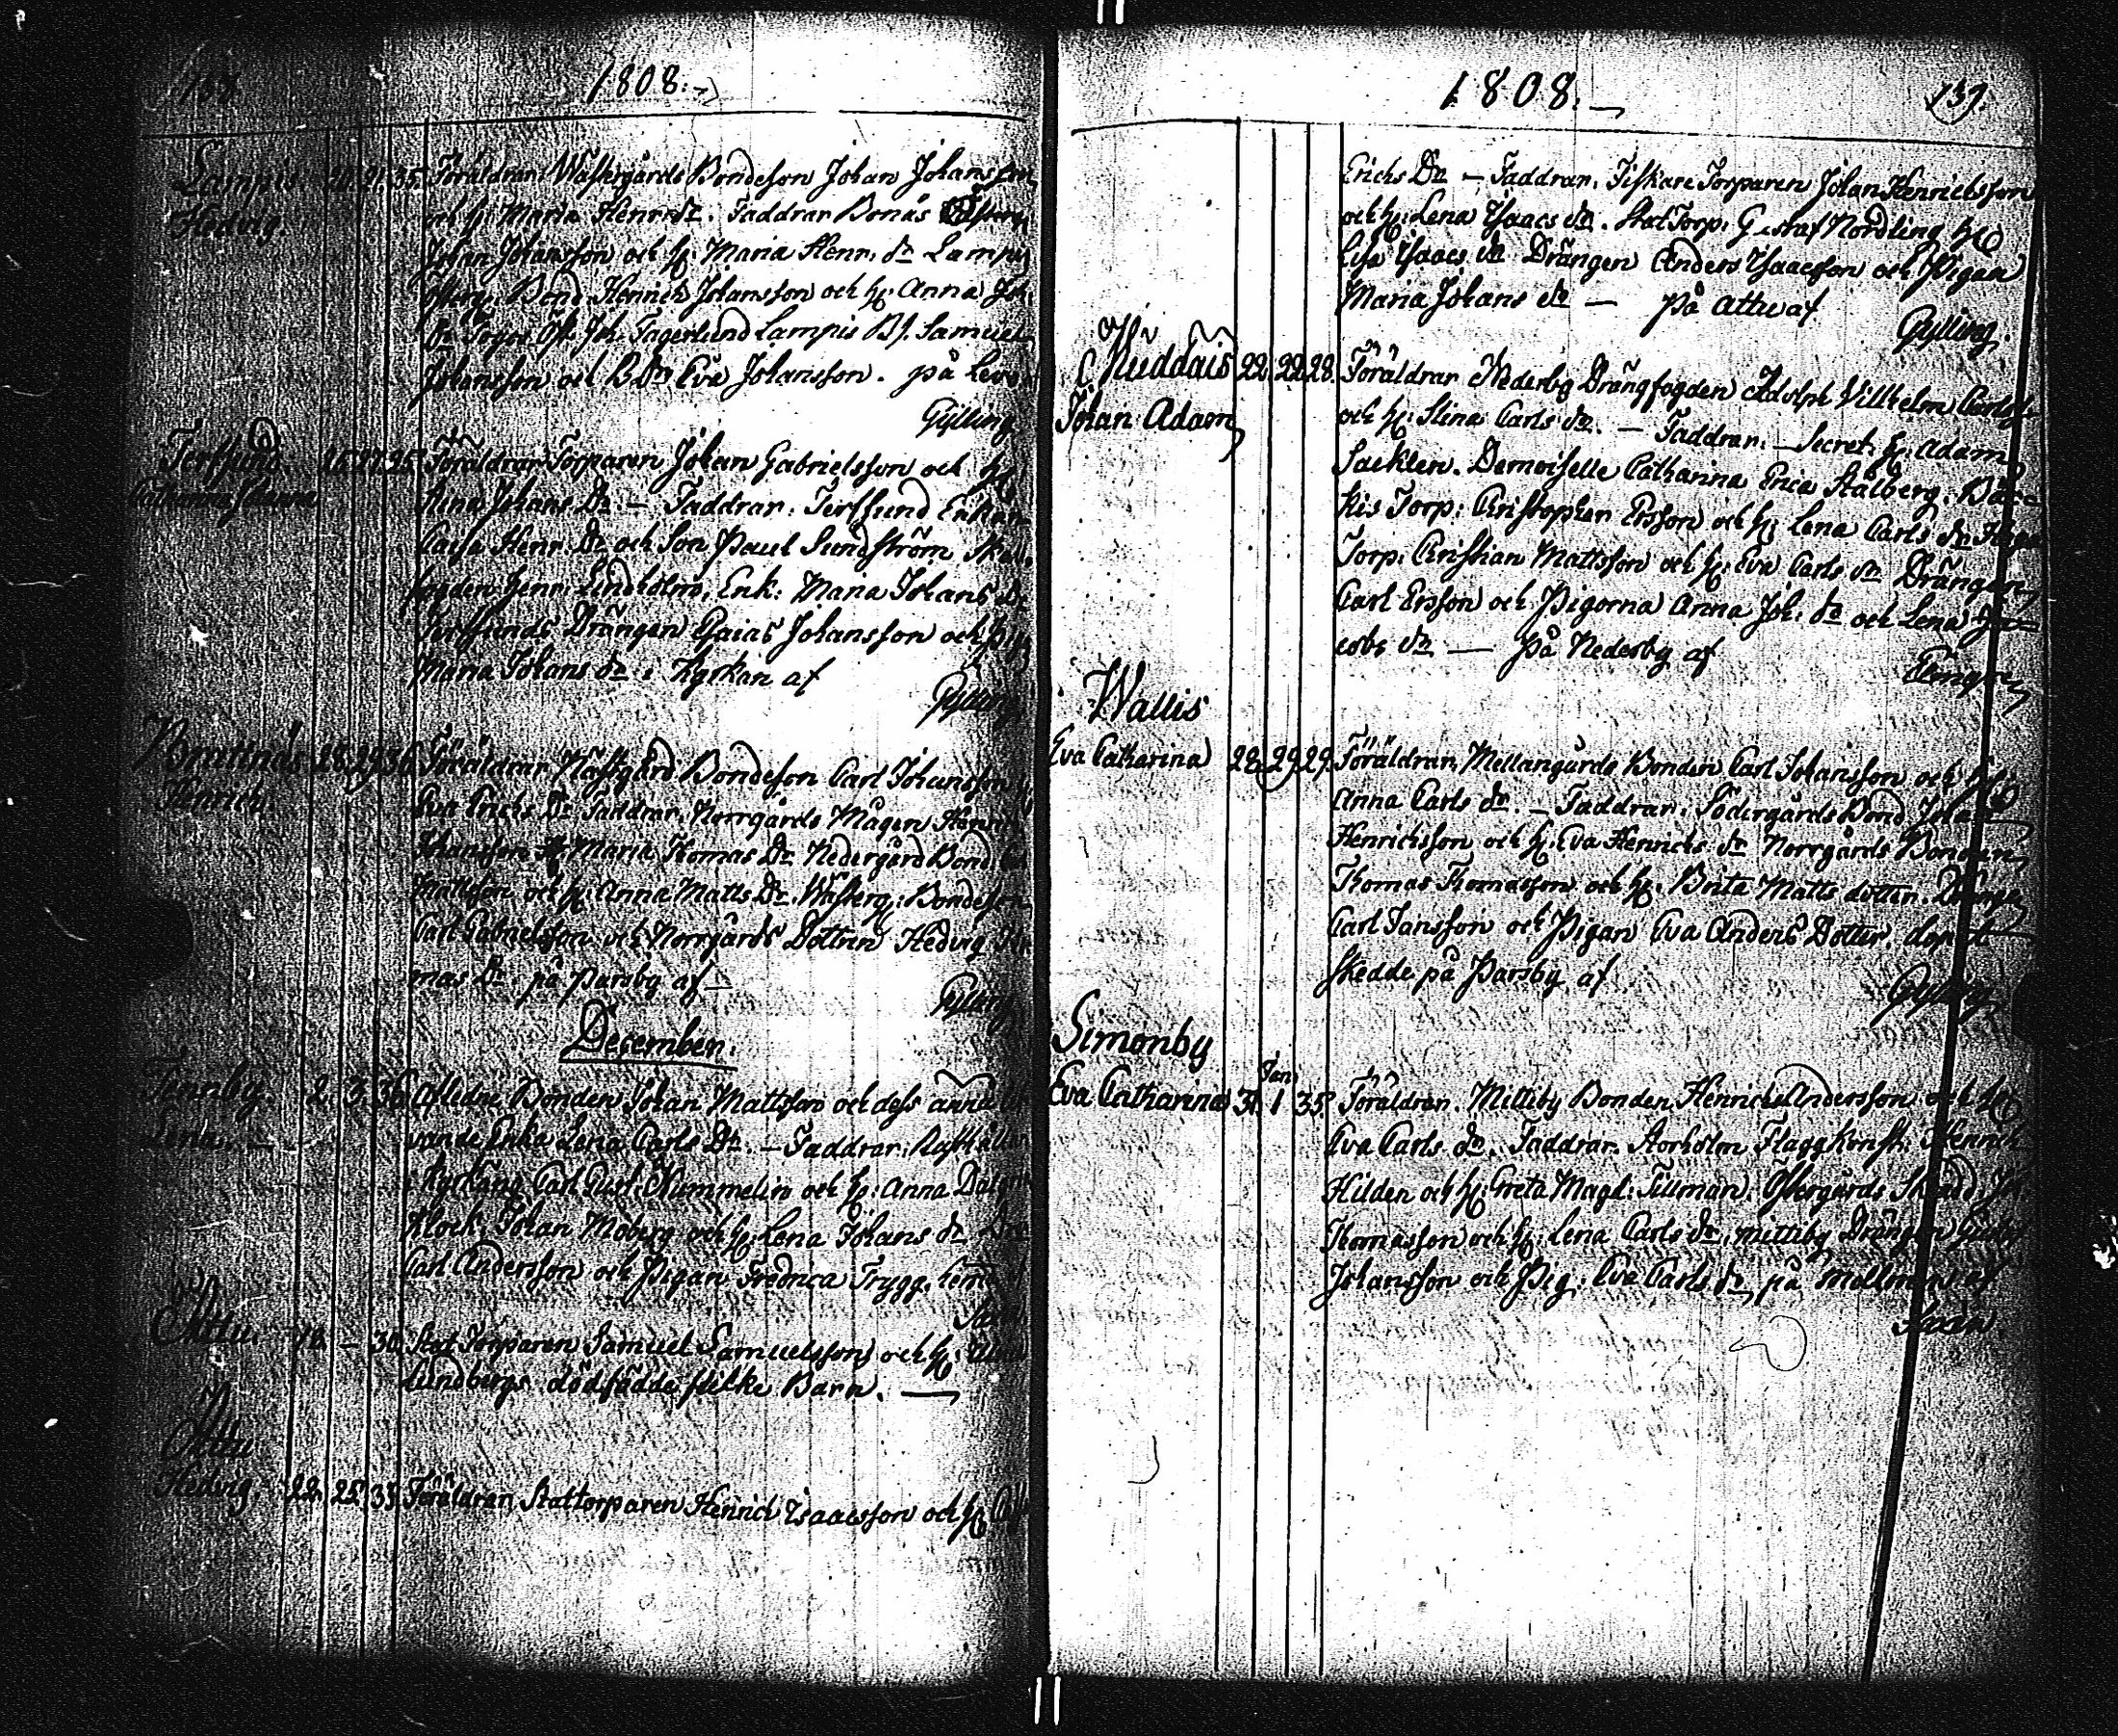 138
1808.
Lampis 20. 21. 35. Föräldrar Wästergårds Bondeson Johan Johansson
Hedvig. och h: Maria Henr: dr. Faddrar Bonäs
Johan Johansson och h: Maria Henr. dr Lampis
Bond Henrich Johansson och h: Anna Joh:
Joh: Fagerlund Lampis B.s. Samuel
Johansson och B.dr Eva Johansson. på Levo
Gylling
Terfsund 25. 27. 25. Föräldrar Torparen Johan Gabrielsson och h:
Catharina Johanna Anna Johans Dr. — Faddrar. Terfsund Enkan
Caisa Henr. Dr och Son Paul Sundström
fogden Henr: Lindholm, Enk: Maria Johans dr
Terfsunds Drängen Esaias Johansson och Pig
Maria Johans dr i Kyrkan af
Gylling
28. 29. 36. Föräldrar Nästgård Bondeson Carl Johansson
Henrich. Eva Erichs Dr Faddrar. Norrgårds Mågen Henric
Johansson Maria Thomas Dr. Nedergård Bond
Mattsson och h: Anna Matts Dr. Wästerg: Bondeson
Carl Gabrielsson och Norrgårds Dottren Hedvig Tho
mas Dr på Parsby af —
Gylling
December.
Tennby. 2. 3. 36. Afledne Bonden Johan Mattsson och dess änna le
Lena. — vande Enka Lena Carls Dr. — Faddrar:
i Kyrkan Carl Gust. Nummelin och h: Anna
Klock. Johan Moberg och h: Lena Johans dr
Carl Andersson och Pigan Fredrica Trygg.
Attu. 18. — 30. Stat Torparen Samuel Samuelsson och h:
Lundbergs dödfödde flicke Barn. —
Attu
Hedvig. 22. 25. 33. Föräldrar Stattorparen Henrich Isaacsson och h:
1808.
139.
Erichs Dr — Faddrar. Fiskare Torparen Johan Henrichsson
och h: Lena Isaacs dr. Stat Torp: Gustaf Nordling h:
Lisa Isaacs dr Drängen Anders Isaacsson och Pigan
Maria Johans dr — på Attu af
Gylling.
Muddais 22. 22. 28. Föräldrar Nederby Drängfogden Adolph Villhelm Carls
Johan Adam och h: Stina Carls dr. — Faddrar. — Secret: h: Adam
Sacklen. Demoiselle Catharina Erica Stålberg.
kis Torp: Christopher Ersson och h: Lena Carls dr
Torp: Christian Mattsson och h: Eva Carls dr Drängen
Carl Ersson och Pigorna Anna Joh: dr och Lena
cobs dr — på Nederby af
Wallis
Eva Catharina 28. 29. 29. Föräldrar Mellangårds Bonden Carl Johansson och h:
Anna Carls dr. — Faddrar. Södergårds Bond Johan
Henrichsson och h: Eva Henrichs dr Norrgårds Bonden
Thomas Thomasson och h: Brita Matts dotter. Drängen
Carl Jansson och Pigan Eva Anders Dotter. dopet
skedde på Parsby af
Gylling
Simonby
Jan:
Eva Catharina 31. 1 35. Föräldrar. Mittiby Bonden Henrich Andersson och h:
Eva Carls dr. Faddrar. Storholm Flaggkonst: Henrich
Hilden och h: Greta Magd: Tillman. Östergårds
Thomasson och h: Lena Carls dr, Mittiby Drängen
Johansson och Pig: Eva Carls dr på